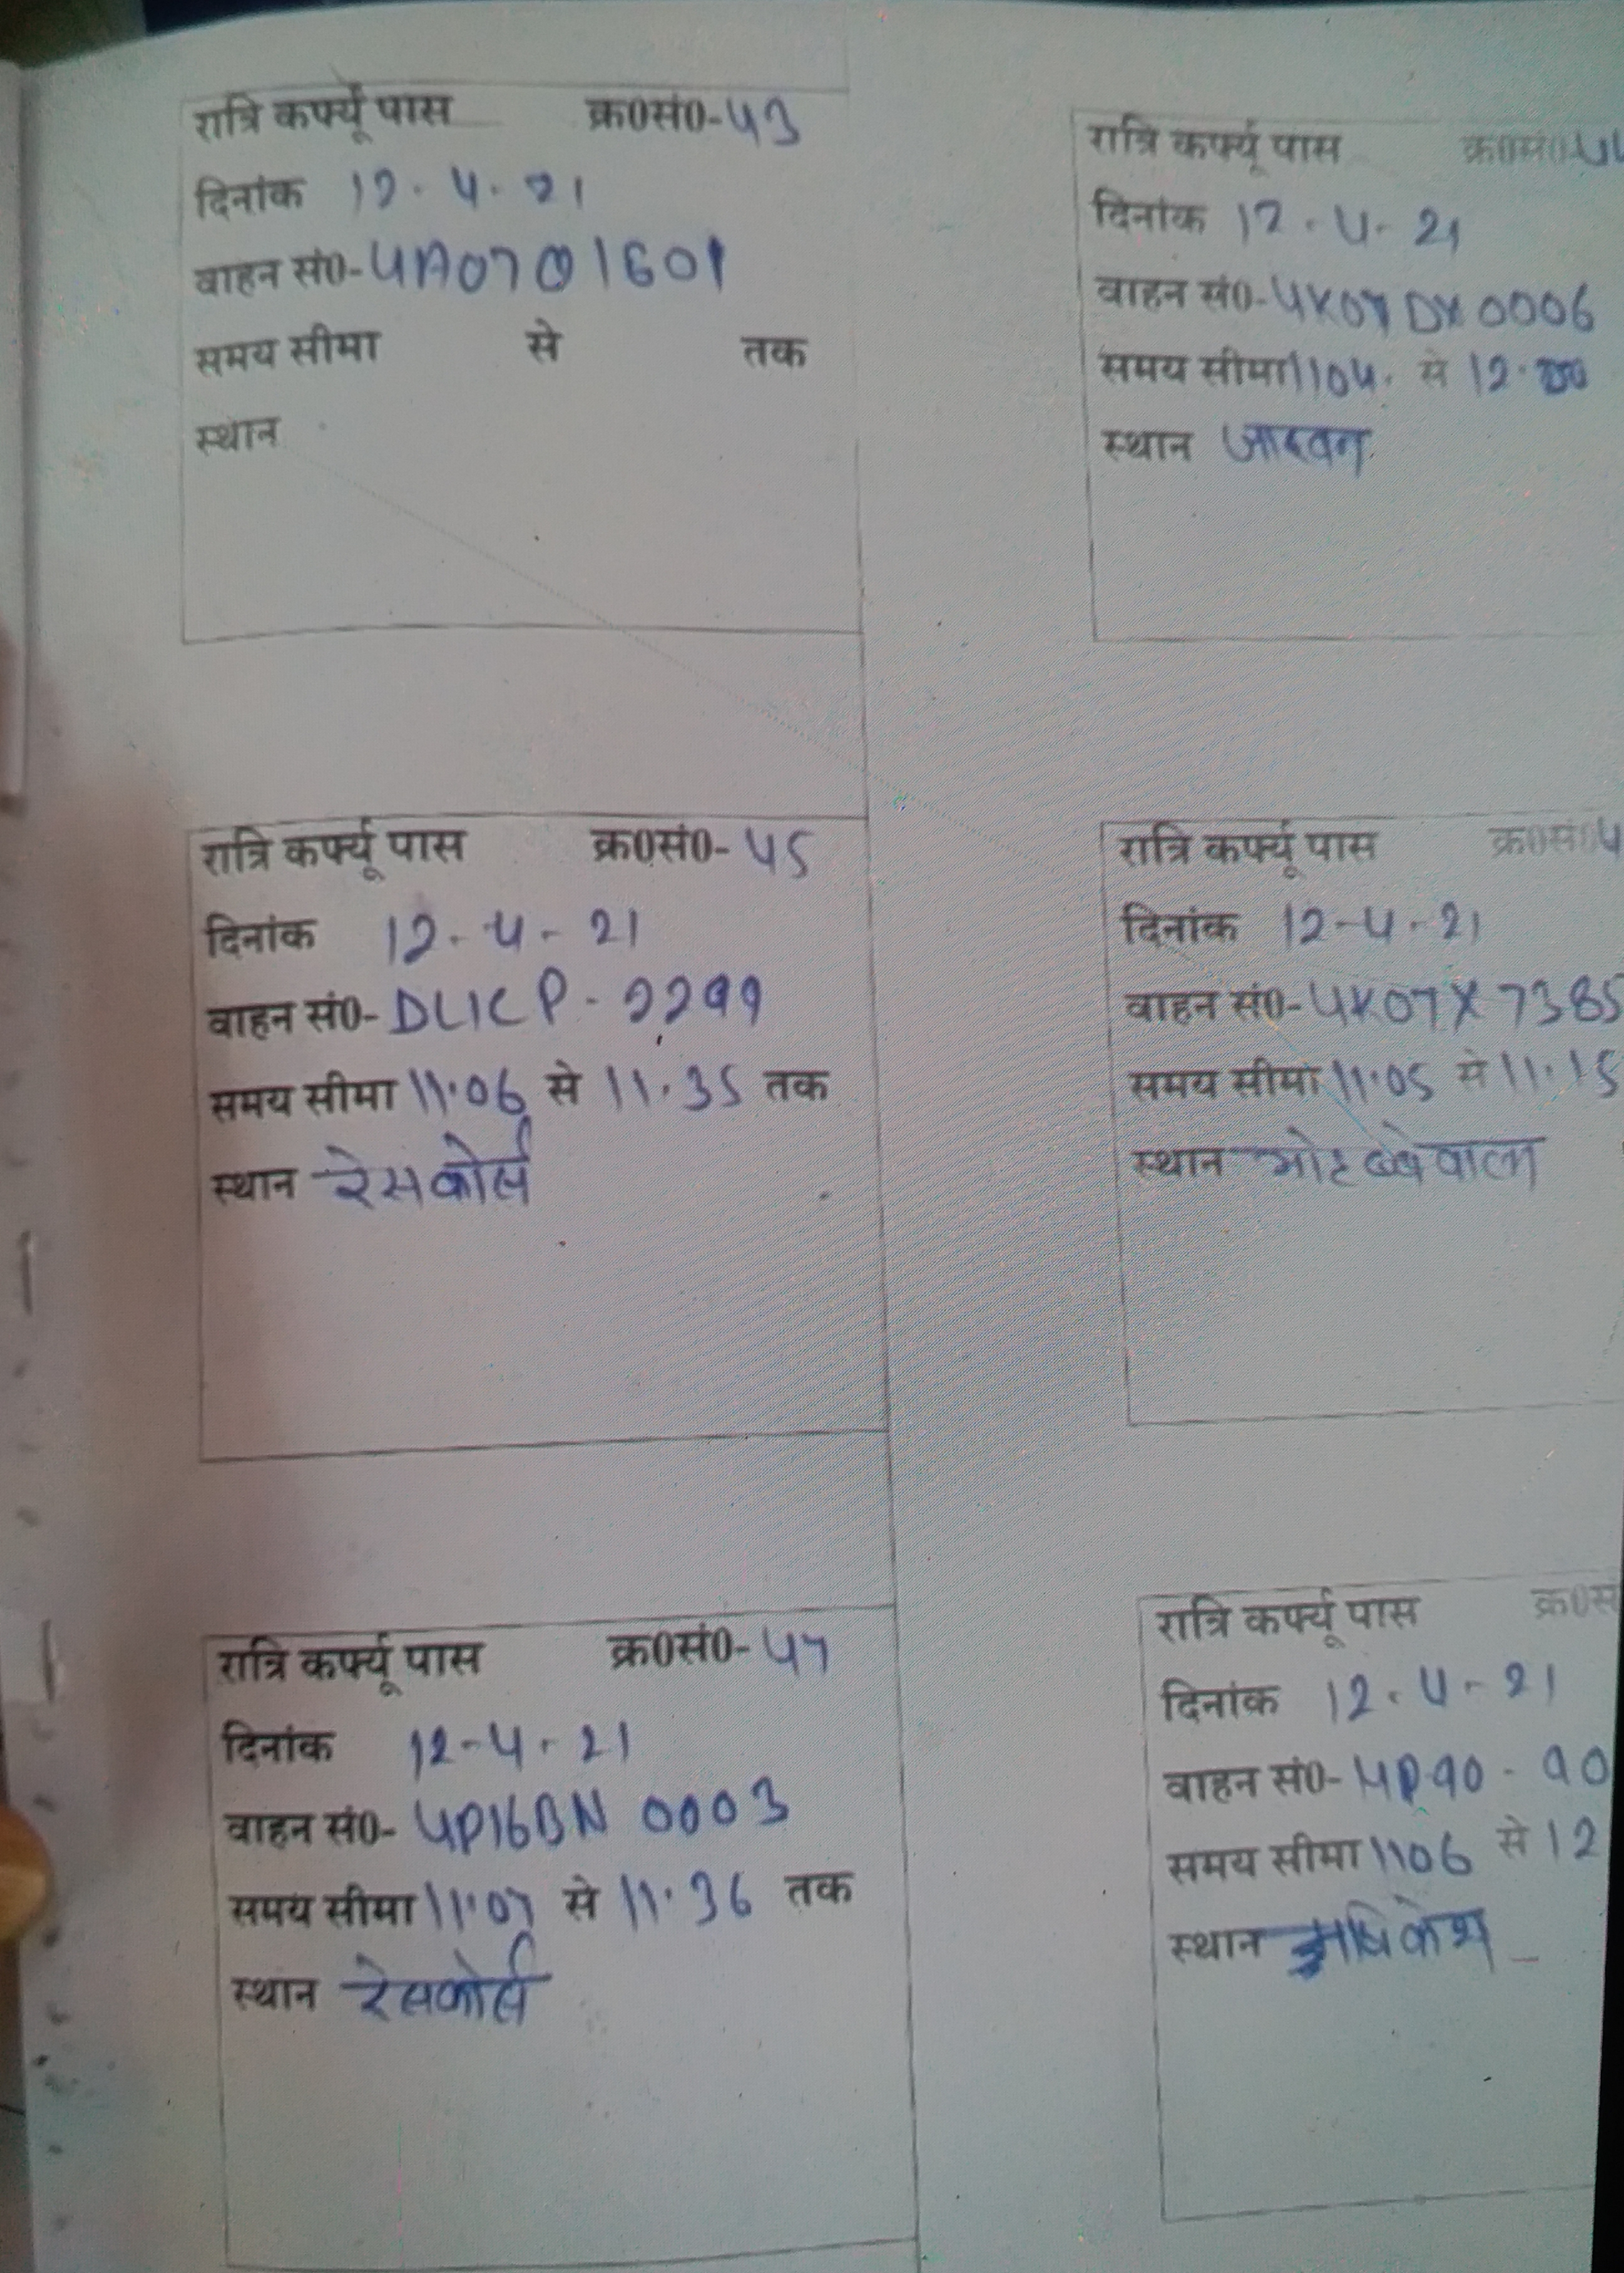 रात्रि कर्फ्यू पास क्र0सं0-43
दिनांक 12.4.21
वाहन सं0-UA07Q1601
समय सीमा से तक
स्थान
रात्रि कर्फ्यू पास क्र0सं0-
दिनांक 12.4.21
वाहन सं0-UK07DX0006
समय सीमा 1104. से 12.00
स्थान
रात्रि कर्फ्यू पास क्र0सं0-45
दिनांक 12-4-21
वाहन सं0-DL1CP-2299
समय सीमा 11.06 से 11.35 तक
स्थान रेसकोर्स
रात्रि कर्फ्यू पास क्र0सं0
दिनांक 12-4-21
वाहन सं0-UK07X7385
समय सीमा 11.05 से 11.15
स्थान
रात्रि कर्फ्यू पास क्र0सं0-47
दिनांक 12-4-21
वाहन सं0-UP16BN 0003
समय सीमा 11.07 से 11.36 तक
स्थान रेसकोर्स
रात्रि कर्फ्यू पास
दिनांक 12.4-21
वाहन सं0-
समय सीमा 1106 से 12
स्थान